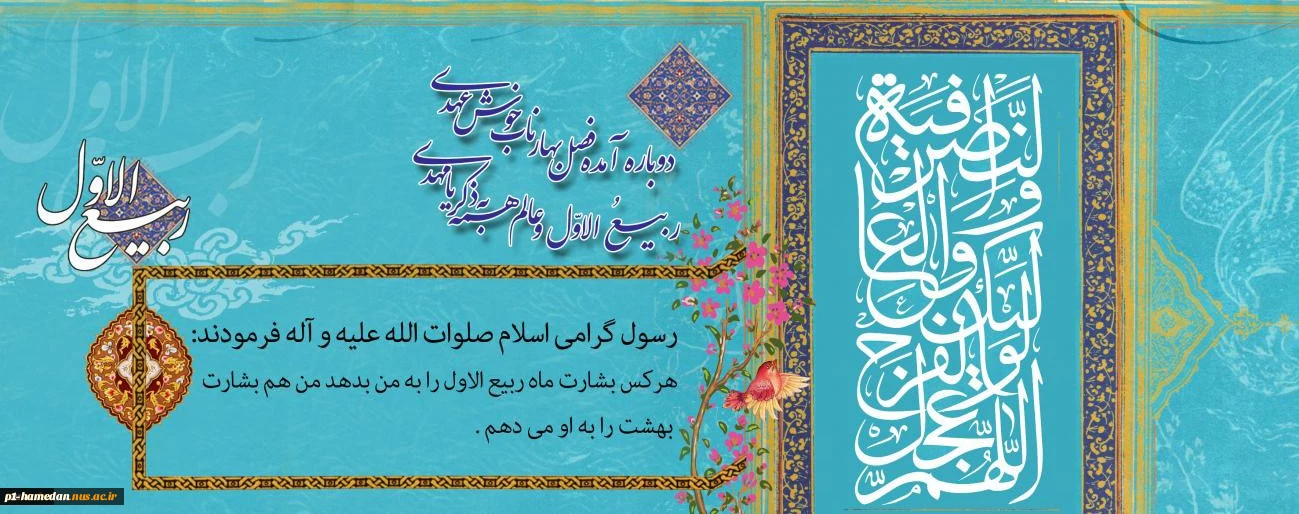 اللّهُمَّ عَجِّل لِوَلیِّکَ الفَرَجَ
وَالعافیَةَ وَالنَّصرَ
دوباره آمده فصل بهار ناب خوش عهدی
ربیعُ الاوّل و عالم همه به ذکر یا مهدی
ربیع الاوّل
رسول گرامی اسلام صلوات الله علیه و آله فرمودند:
هرکس بشارت ماه ربیع الاول را به من بدهد من هم بشارت
بهشت را به او می دهم .
p1-hamedan.nus.ac.ir